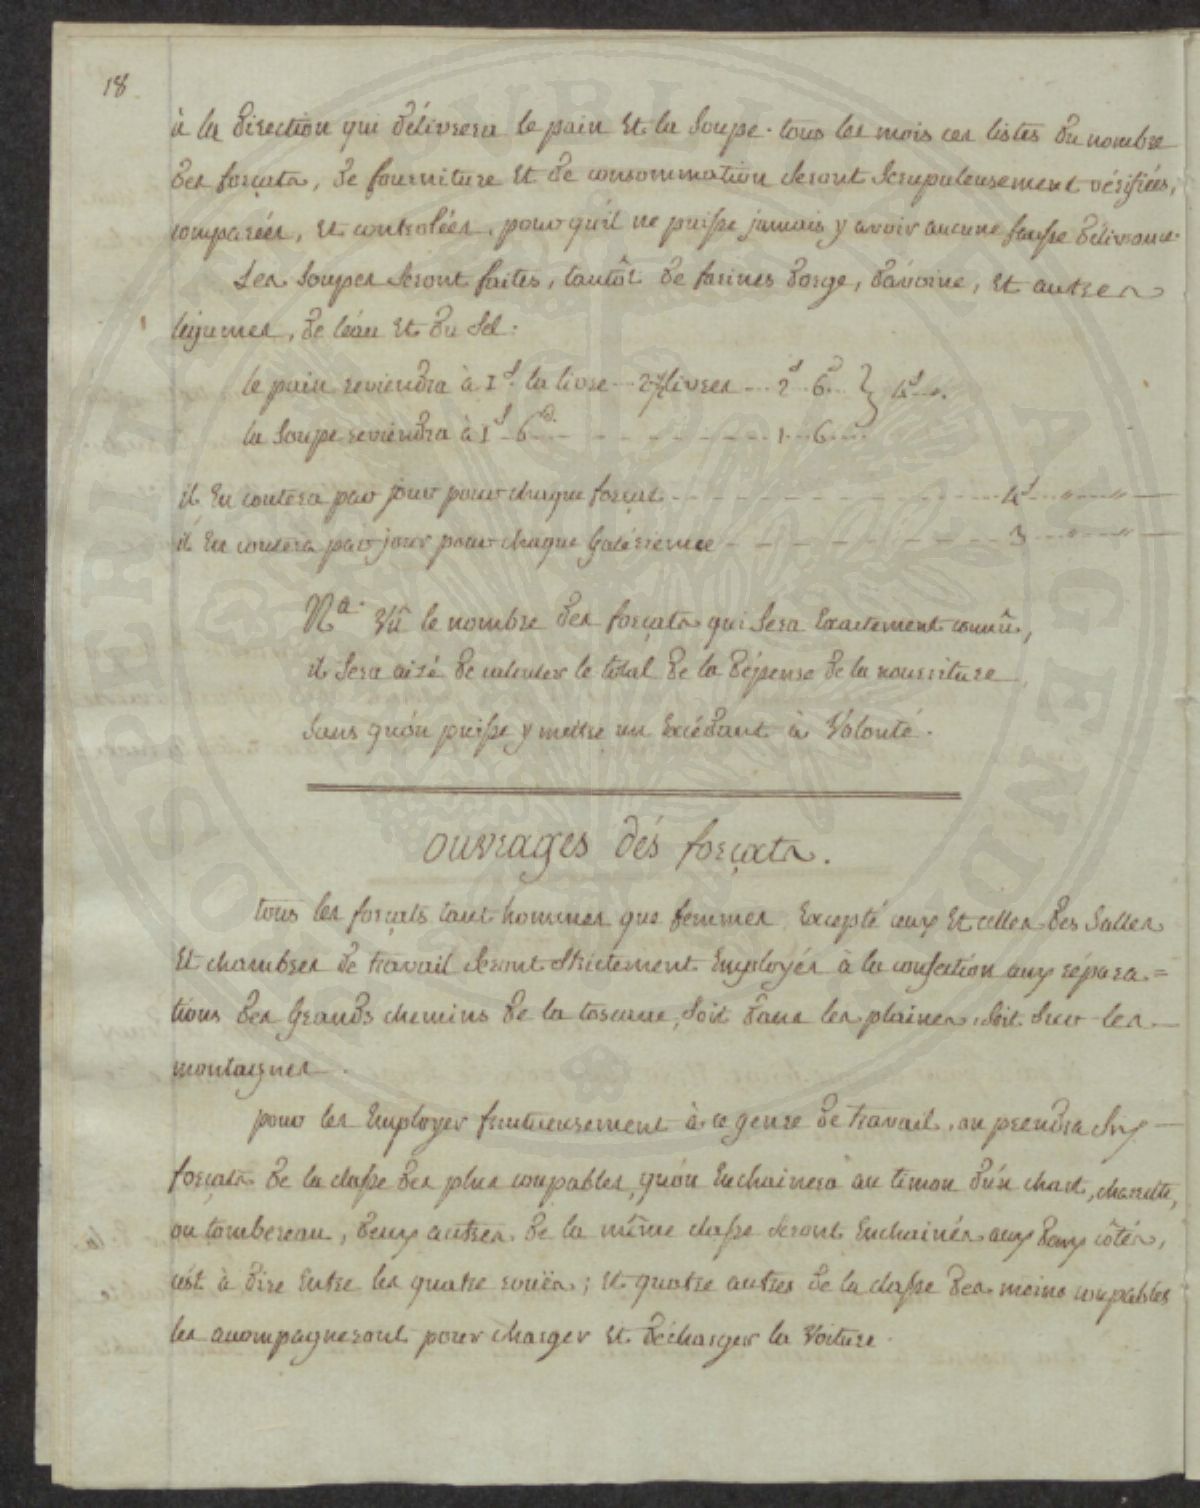 18
à la direction qui délivrera le pain Et la Soupe. tous les mois ces listes du nombre
des forçats, de fourniture Et de consommation Seront Scrupuleusement vérifiées,
comparées, Et controlées, pour qu'il ne puisse jamais y avoir aucune fausse délivrance.
Les Soupes Seront faites, tantôt de farines d'orge, d'avoine, Et autres
légumes, de l'éau Et du Sel.
le pain reviendra à 1ˢ. la livre -- 2½ livres --- 2ˢ.. 6ᵈ... } 4ˢ..
la Soupe reviendra à 1ˢ.. 6ᵈ. - - - - - - - - 1... 6....
il En coutera par jour pour chaque forçat - - - - - - - - 4ˢ... " ... " —
il En coutera par jour pour chaque Galérienne - - - - - - - 3 ... " ... " —
Nᵃ. Vû le nombre des forçats qui Sera Exactement connû,
il Sera aizé de calculer le total de la dépense de la nourriture
Sans qu'on puisse y mettre un Excédant à Volonté.
ouvrages dés forçats.
tous les forçats tant hommes que femmes Excepté ceux Et celles des Salles
Et chambres de travail Seront Strictement Employés à la confection aux répara=
tions des Grands chemins de la toscane, Soit dans les plaines, Soit Sur les
montagnes.
pour les Employer fructueusement à ce genre de travail, on prendra Six
forçats de la classe des plus coupables, qu'on Enchainera au timon d'un chart, charette,
ou tombereau, deux autres de la même classe Seront Enchainés aux deux côtés,
c'ést à dire Entre les quatre rouës; Et quatre autres de la classe des moins coupables
les acompagneront pour charger Et décharger la Voiture.
SOSPTERITATEPVBLICAEAVGENDAE